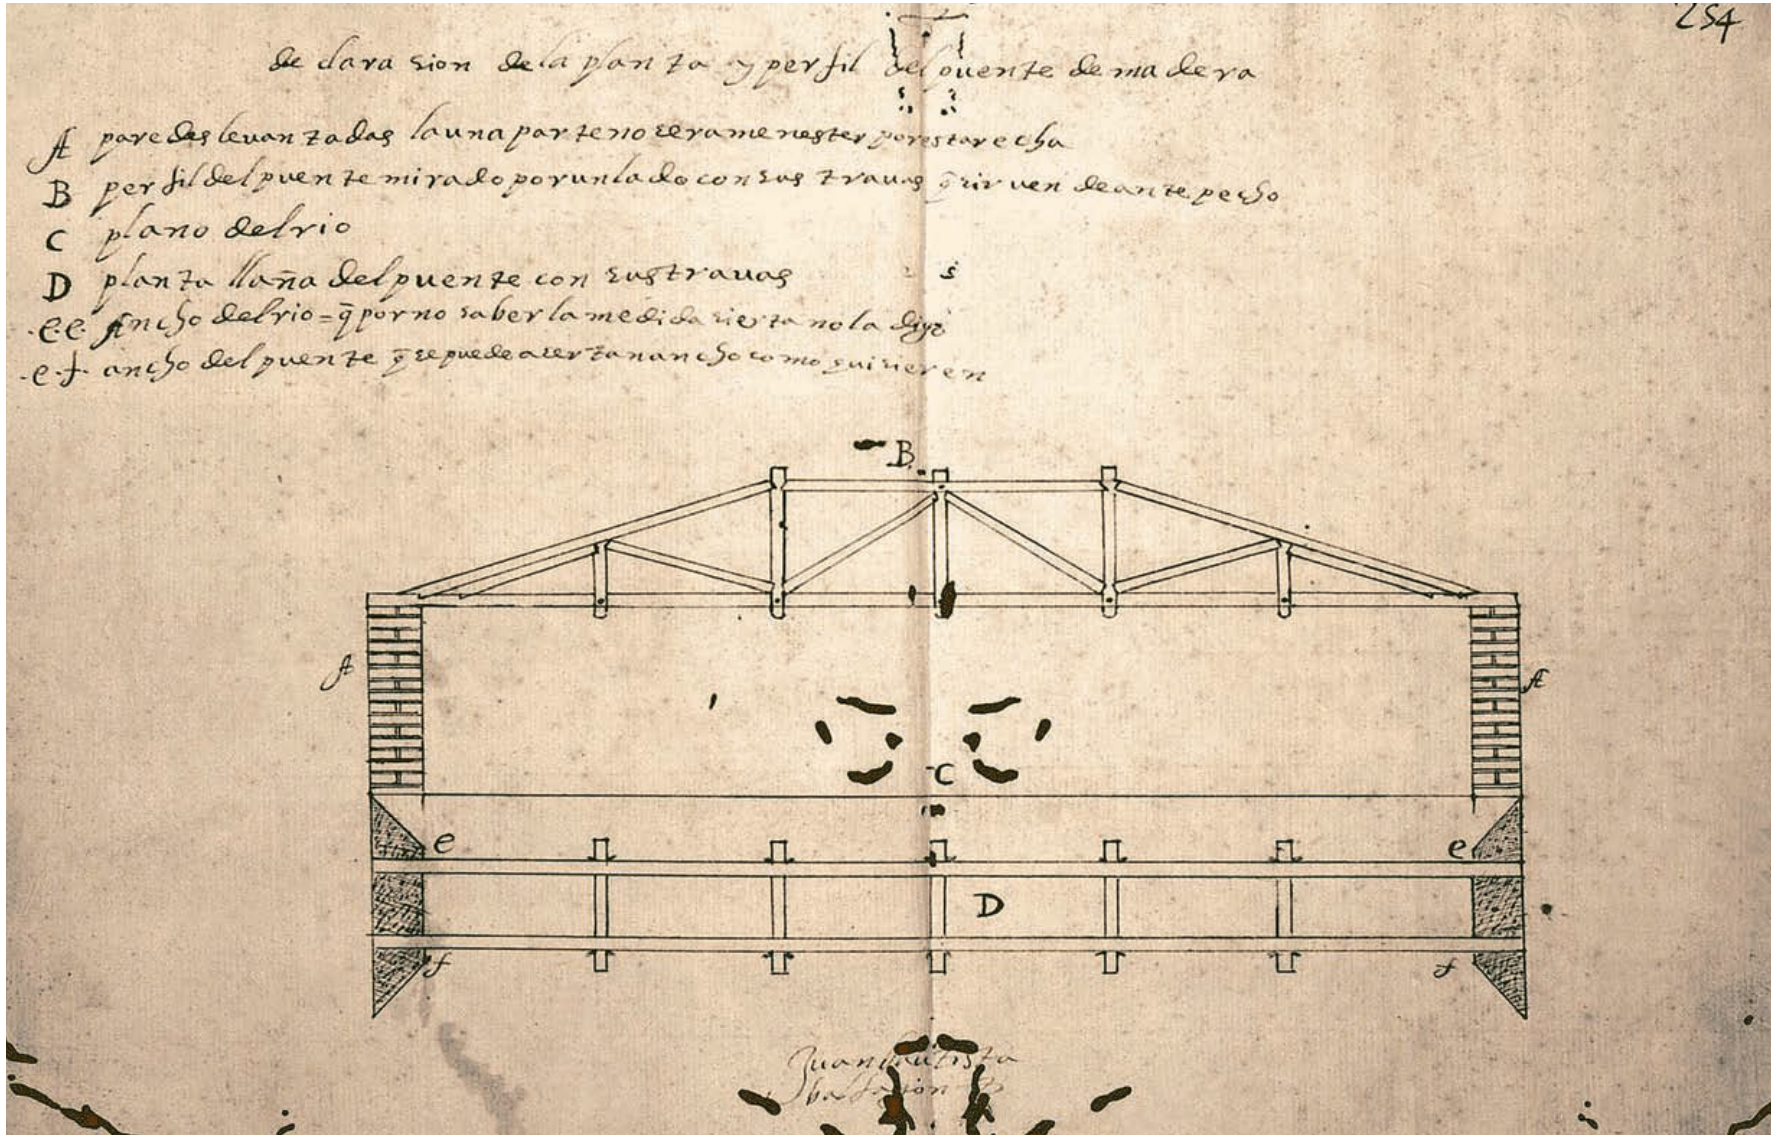 254
declarasion dela planta y perfil del puente de madera
A paredes levantadas la una parte no sera menester por estar echa
B perfil del puente mirado por un lado con sus travas q̄ sirven de antepecho
C plano del rio
D planta llaña del puente con sus travas
.e.e. Ancho del rio = q̄ por no saber la medida sierta no la digo
.e.f. ancho del puente q̄ se puede aser tan ancho como quisieren
B
A A
C
e e
D
f f
Juan bautista